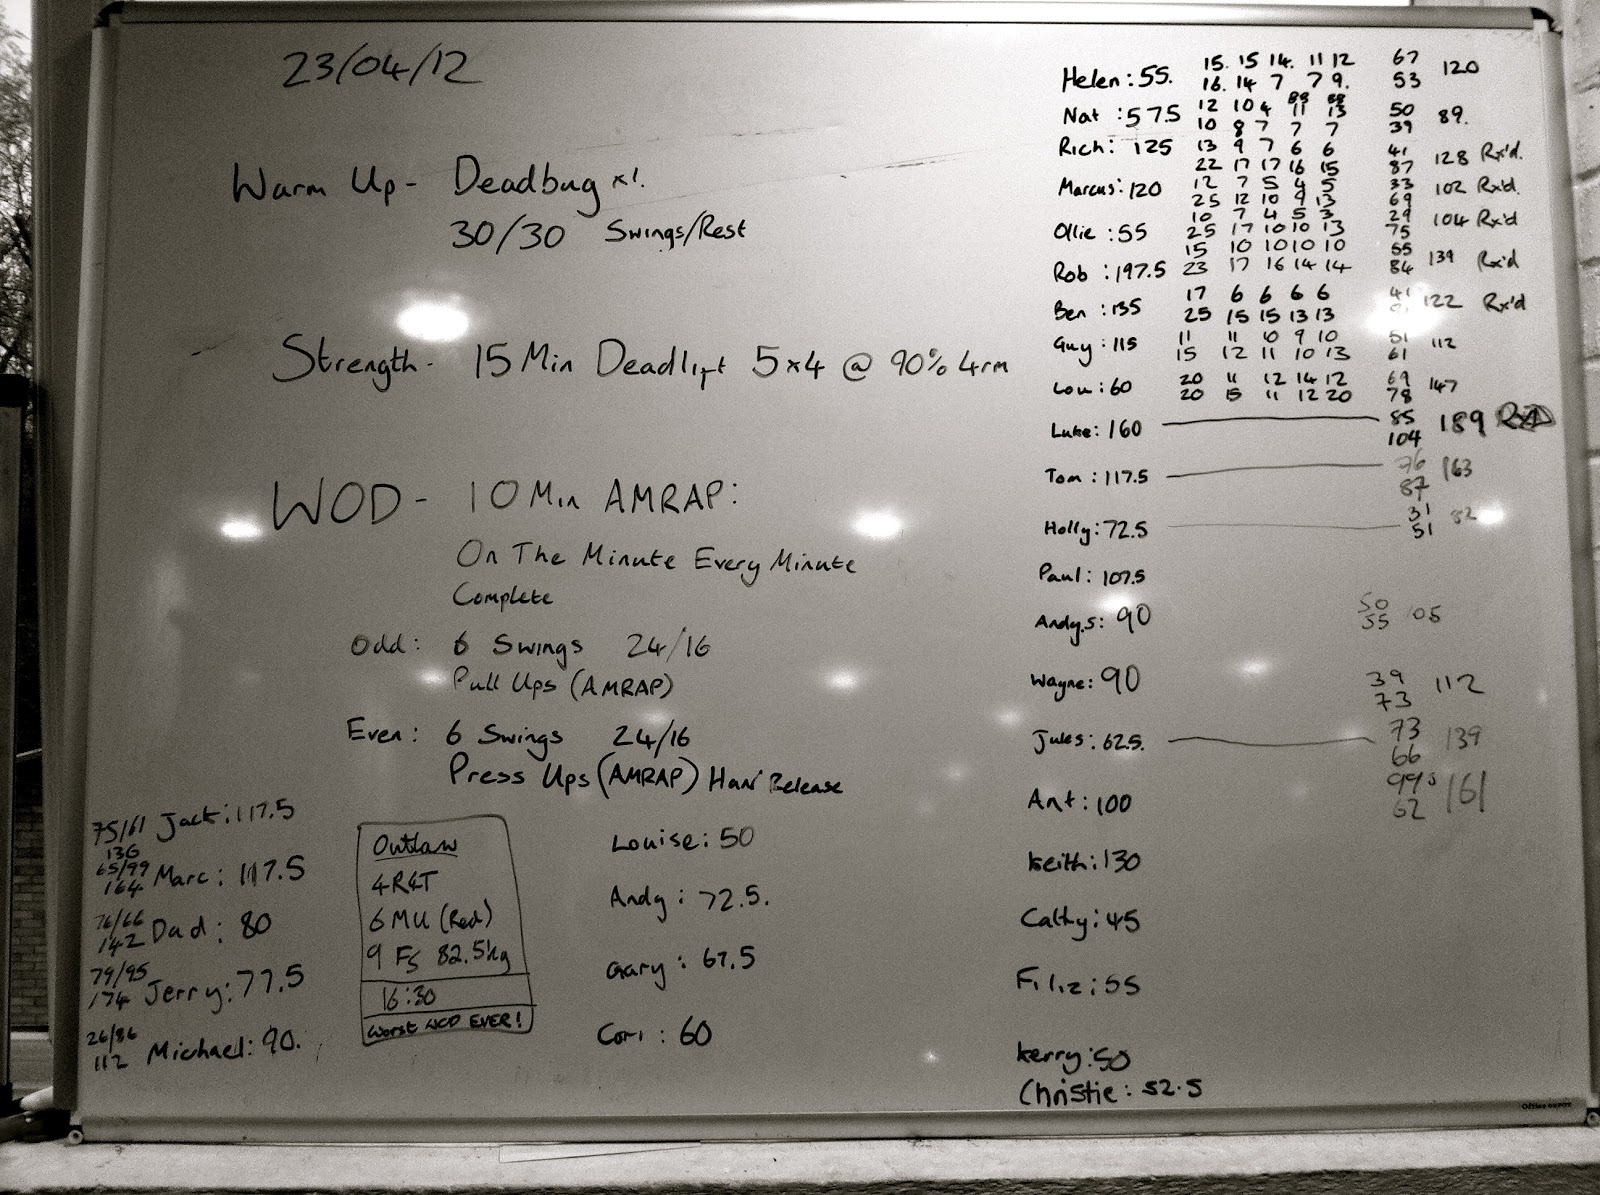 23/04/12
Warm Up - Deadbug x1.
30/30 Swings/Rest
Strength - 15 Min Deadlift 5x4 @ 90% 4rm
WOD - 10 Min AMRAP:
On The Minute Every Minute
Complete
Odd: 6 Swings 24/16
Pull Ups (AMRAP)
Even: 6 Swings 24/16
Press Ups (AMRAP) Han' Release
75/61 Jack: 117.5
136
65/99 Marc: 117.5
164
76/66 Dad: 80
142
79/95 Jerry: 77.5
174
26/86 Michael: 90.
112
Outlaw
4R4T
6 MU (Red)
9 FS 82.5kg
16:30
Worst WOD EVER!
Louise: 50
Andy: 72.5.
Gary: 67.5
Cori: 60
Helen: 55. 15. 15 14. 11 12 67 120
16. 14 7 7 9. 53
Nat: 57.5 12 10 4 11 13 50 89.
10 8 7 7 7 39
Rich: 125 13 9 7 6 6 41 128 Rx'd.
22 17 17 16 15 87
Marcus: 120 12 7 5 4 5 33 102 Rx'd.
25 12 10 9 13 69
Ollie: 55 10 7 4 5 3 29 104 Rx'd
25 17 10 10 13 75
Rob: 197.5 15 10 10 10 10 55 139 Rx'd
23 17 16 14 14 84
Ben: 135 17 6 6 6 6 41 122 Rx'd
25 15 15 13 13
Guy: 115 11 11 10 9 10 51 112
15 12 11 10 13 61
Lou: 60 20 11 12 14 12 69 147
20 15 11 12 20 78
Luke: 160 85 189
104
Tom: 117.5 76 163
87
Holly: 72.5 31 82
51
Paul: 107.5
Andy.S: 90 50 105
55
Wayne: 90 39 112
73
Jules: 62.5. 73 139
66
Ant: 100 99 161
62
Keith: 130
Cathy: 45
Filiz: 55
Kerry: 50
Christie: 52.5
Office DEPOT